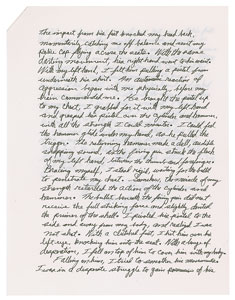 The impact from his fist knocked my head back,
momentarily catching me off balance and sent my
Police cap flying across the seats. With the same
darting movement, his right hand went to his waist.
With my left hand, I felt him pulling a pistol from
underneath his shirt. His automatic reaction of
aggression began with me physically, before my
brain commanded me. As he brought the pistol up
to my chest, I grabbed for it with my left hand
and grasped his pistol over the cylinder and hammer,
with all the strength I could muster. I could feel
the hammer glide under my hand, as he pulled the
trigger. The returning hammer made a dull, audible
snapping sound, as the firing pin struck the flesh
of my left hand, between the thumb and forefinger.
Bracing myself, I sat rigid, waiting for the bullet
to penetrate my chest. Somehow the might of my
strength retarded the action of the cylinder and
hammer. The bullet beneath the firing pin did not
receive the full striking force and slightly dented
the primer of the shell. I pushed his pistol to the
side and away from my body, and realized I was
not shot. With a clenched fist I hit him over his
left eye, knocking him into the seat. With a lunge of
desperation, I fell on top of him to cover him with my body.
Falling on him, I tried to smother his movements.
I was in a desperate struggle to gain possession of his